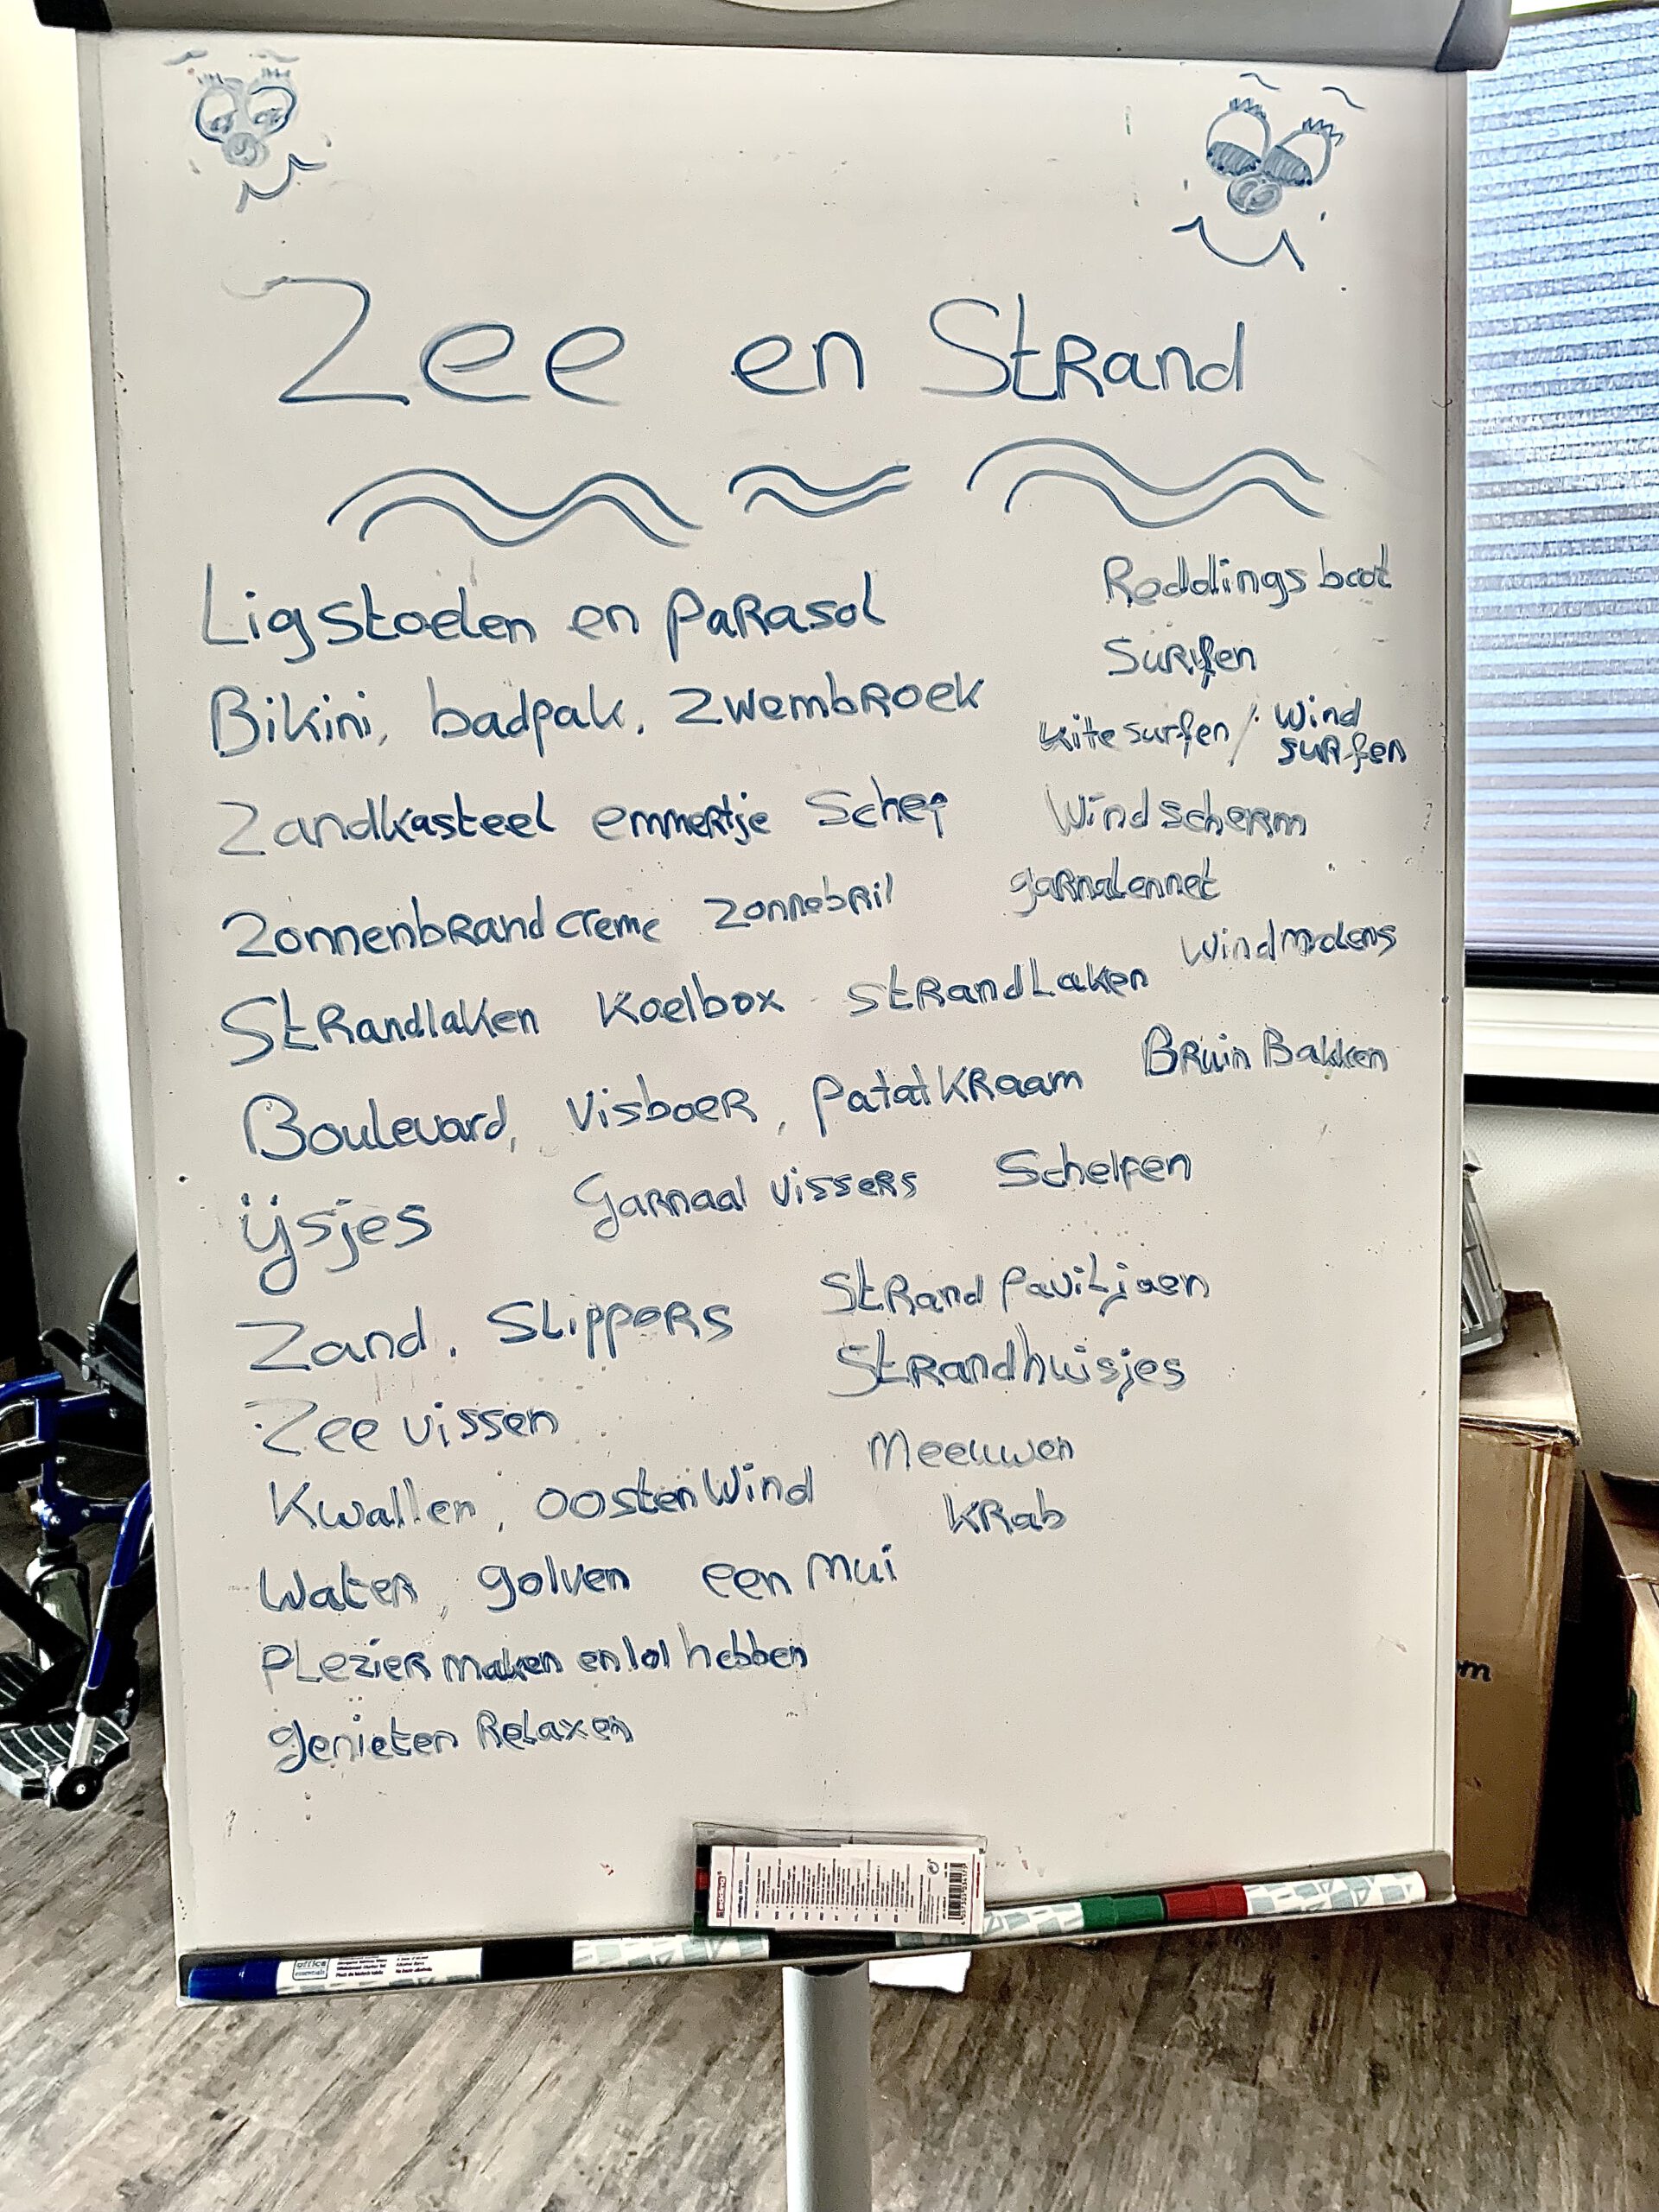 Zee en Strand
Ligstoelen en parasol
Reddingsboot
Surfen
Bikini, badpak, zwembroek
kite surfen / Wind surfen
Zandkasteel emmertje Schep
Windscherm
Zonnenbrand creme zonnebril
garnalennet
Strandlaken Koelbox strandlaken
windmolens
Boulevard, Visboer, patatkraam
Bruin Bakken
ijsjes Garnaal vissers Schelpen
Zand, Slippers
Strand Paviljoen
Strandhuisjes
Zee vissen
Meeuwen
Kwallen, oosten Wind
Krab
Water, golven een mui
Plezier maken en lol hebben
genieten Relaxen
edding
office